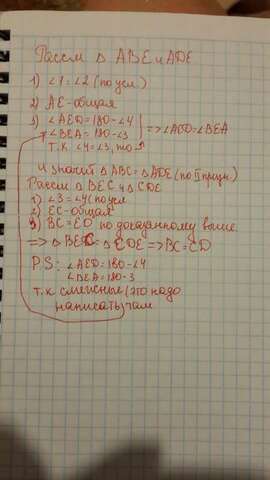 Рассм △ ABE и ADE
1) ∠1 = ∠2 (по усл.
2) AE - общая
3) ∠AED = 180 - ∠4
∠BEA = 180 - ∠3 => ∠AED = ∠BEA
т.к ∠4 = ∠3, то
и значит △ ABC = △ ADE (по II призн.)
Рассм △ BEC и △ CDE
1) ∠3 = ∠4 по усл
2) EC - общая
3) BC = ED по доказанному выше
=> △ BEC = △ CDE => BC = CD
PS: ∠AED = 180 - ∠4
∠BEA = 180 - 3
т.к смежные (это надо
написать) там